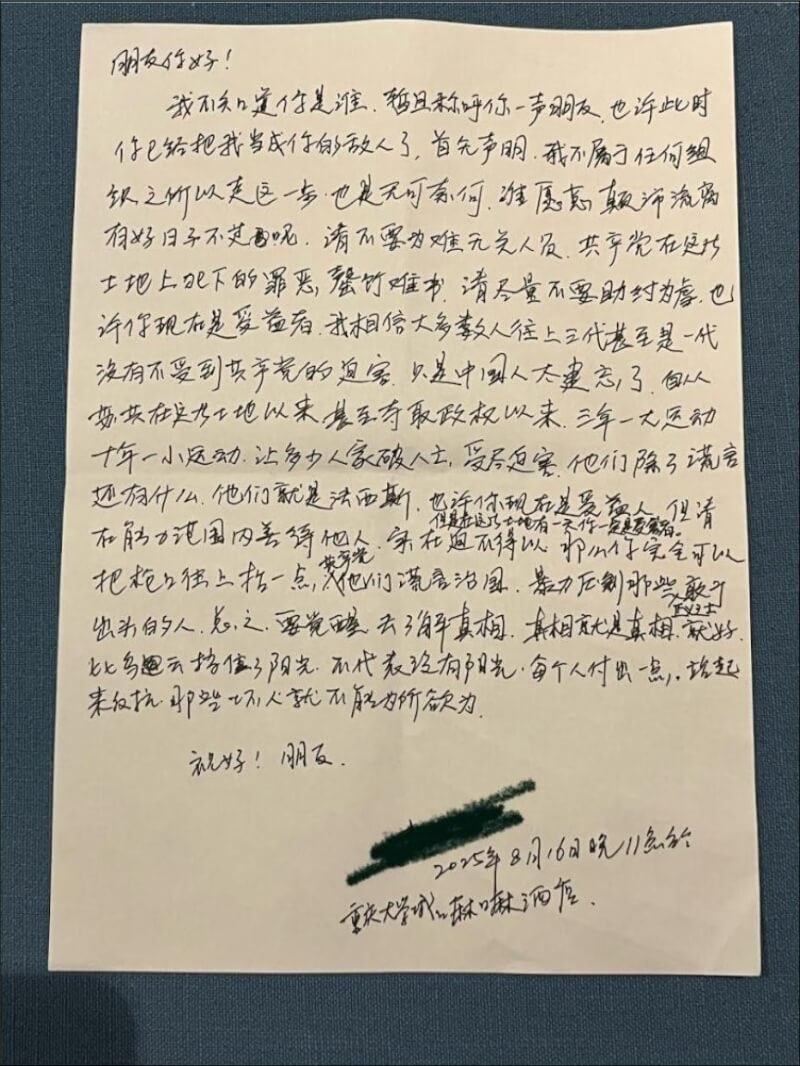 朋友你好！
我不知道你是谁、暂且称呼你一声朋友，也许此时
你已经把我当成你的敌人了，首先声明，我不属于任何组
织之所以走这一步，也是无可奈何，谁愿意颠沛流离
有好日子不过呢，请不要为难无关人员，共产党在这片
土地上犯下的罪恶，罄竹难书，请尽量不要助纣为虐，也
许你现在是受益者，我相信大多数人往上三代甚至是一代
没有不受到共产党的迫害，只是中国人太健忘了，自从
苏共在这片土地以来，甚至夺取政权以来，三年一大运动
十年一小运动，让多少人家破人亡，受尽迫害，他们除了谎言
还有什么，他们就是法西斯，也许你现在是受益人，但请
但是在这片土地有一天你一定是受害者。
在能力范围内善待他人，实在迫不得以，那么你完全可以
共产党
把枪口往上抬一点，他们谎言治国，暴力压制那些敢于
出头的人，总之，要觉醒，去了解真相，真相就是真相，就好
比乌云挡住了阳光，不代表没有阳光，每个人付出一点，站起
来反抗，那些坏人就不能为所欲为，
祝好！朋友．
2025年8月16日晚11点
重庆大学城 酒店．